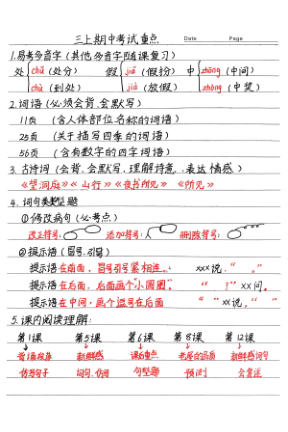 三上期中考试重点
Date Page
1.易考多音字(其他多音字随课复习)
处 chǔ(处分) 假 jiǎ(假扮) 中 zhōng(中间)
chù(到处) jià(放假) zhòng(中奖)
2.词语(必须会背、会默写)
11页 (含人体部位名称的词语)
25页 (关于描写四季的词语)
56页 (含有数字的四字词语)
3.古诗词(会背、会默写、理解诗意、表达情感)
《望洞庭》《山行》《夜书所见》《所见》
4.词句类型题
①修改病句(必考点)
改正符号: 添加符号: 删除符号:
②提示语(冒号、引号)
提示语在前面,冒号引号紧相连。 xxx说:“ 。”
提示语在后面,后面画个“小圆圈”。 “ ?”xx问。
提示语在中间,两个逗号在后面 “ ”xx说,“ ”
5.课内阅读理解:
第1课 第5课 第6课 第8课 第12课
新鲜感 课后重点 新鲜感词句
仿写句子 词句、仿写 句型题 预测